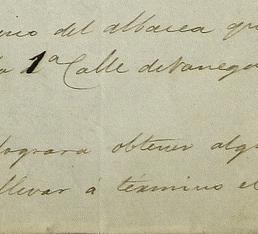 del albacea
1ª Calle de Vanegas
lograra obtener alg
llevar á término el